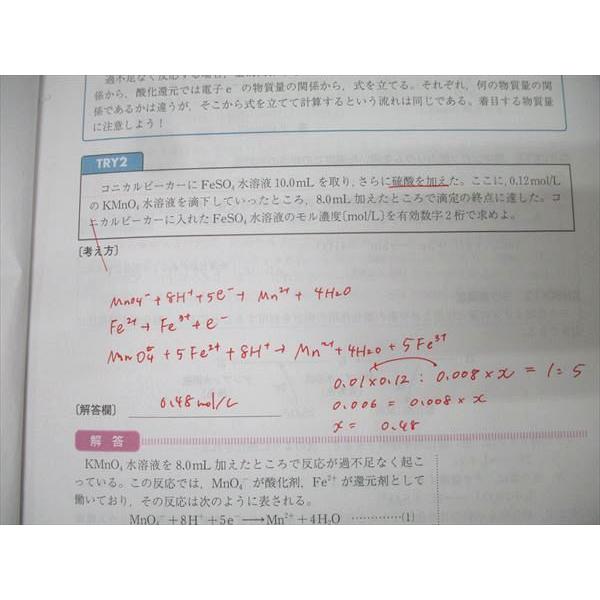 係から，酸化還元では電子e⁻の物質量の関係から，式を立てる。それぞれ，何の物質量の関
係であるかは違うが，そこから式を立てて計算するという流れは同じである。着目する物質量
に注意しよう！
TRY2
コニカルビーカーにFeSO₄水溶液10.0mLを取り，さらに硫酸を加えた。ここに，0.12mol/L
のKMnO₄水溶液を滴下していったところ，8.0mL加えたところで滴定の終点に達した。コ
ニカルビーカーに入れたFeSO₄水溶液のモル濃度〔mol/L〕を有効数字2桁で求めよ。
［考え方］
MnO₄⁻+8H⁺+5e⁻→ Mn²⁺ + 4H₂O
Fe²⁺→ Fe³⁺+e⁻
+5Fe²⁺+8H⁺→ +4H₂O+5Fe³⁺
0.01×0.12 : 0.008×x = 1:5
0.006 = 0.008×x
x= 0.48
［解答欄］ 0.48mol/L
解答
KMnO₄水溶液を8.0mL加えたところで反応が過不足なく起こ
っている。この反応では，MnO₄⁻が酸化剤，Fe²⁺が還元剤として
働いており，その反応は次のように表される。
MnO₄⁻+8H⁺+5e⁻→Mn²⁺+4H₂O …………(1)